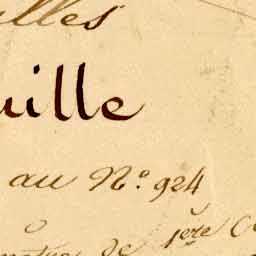 ulles
uille
au N.º 924
de 1ère C